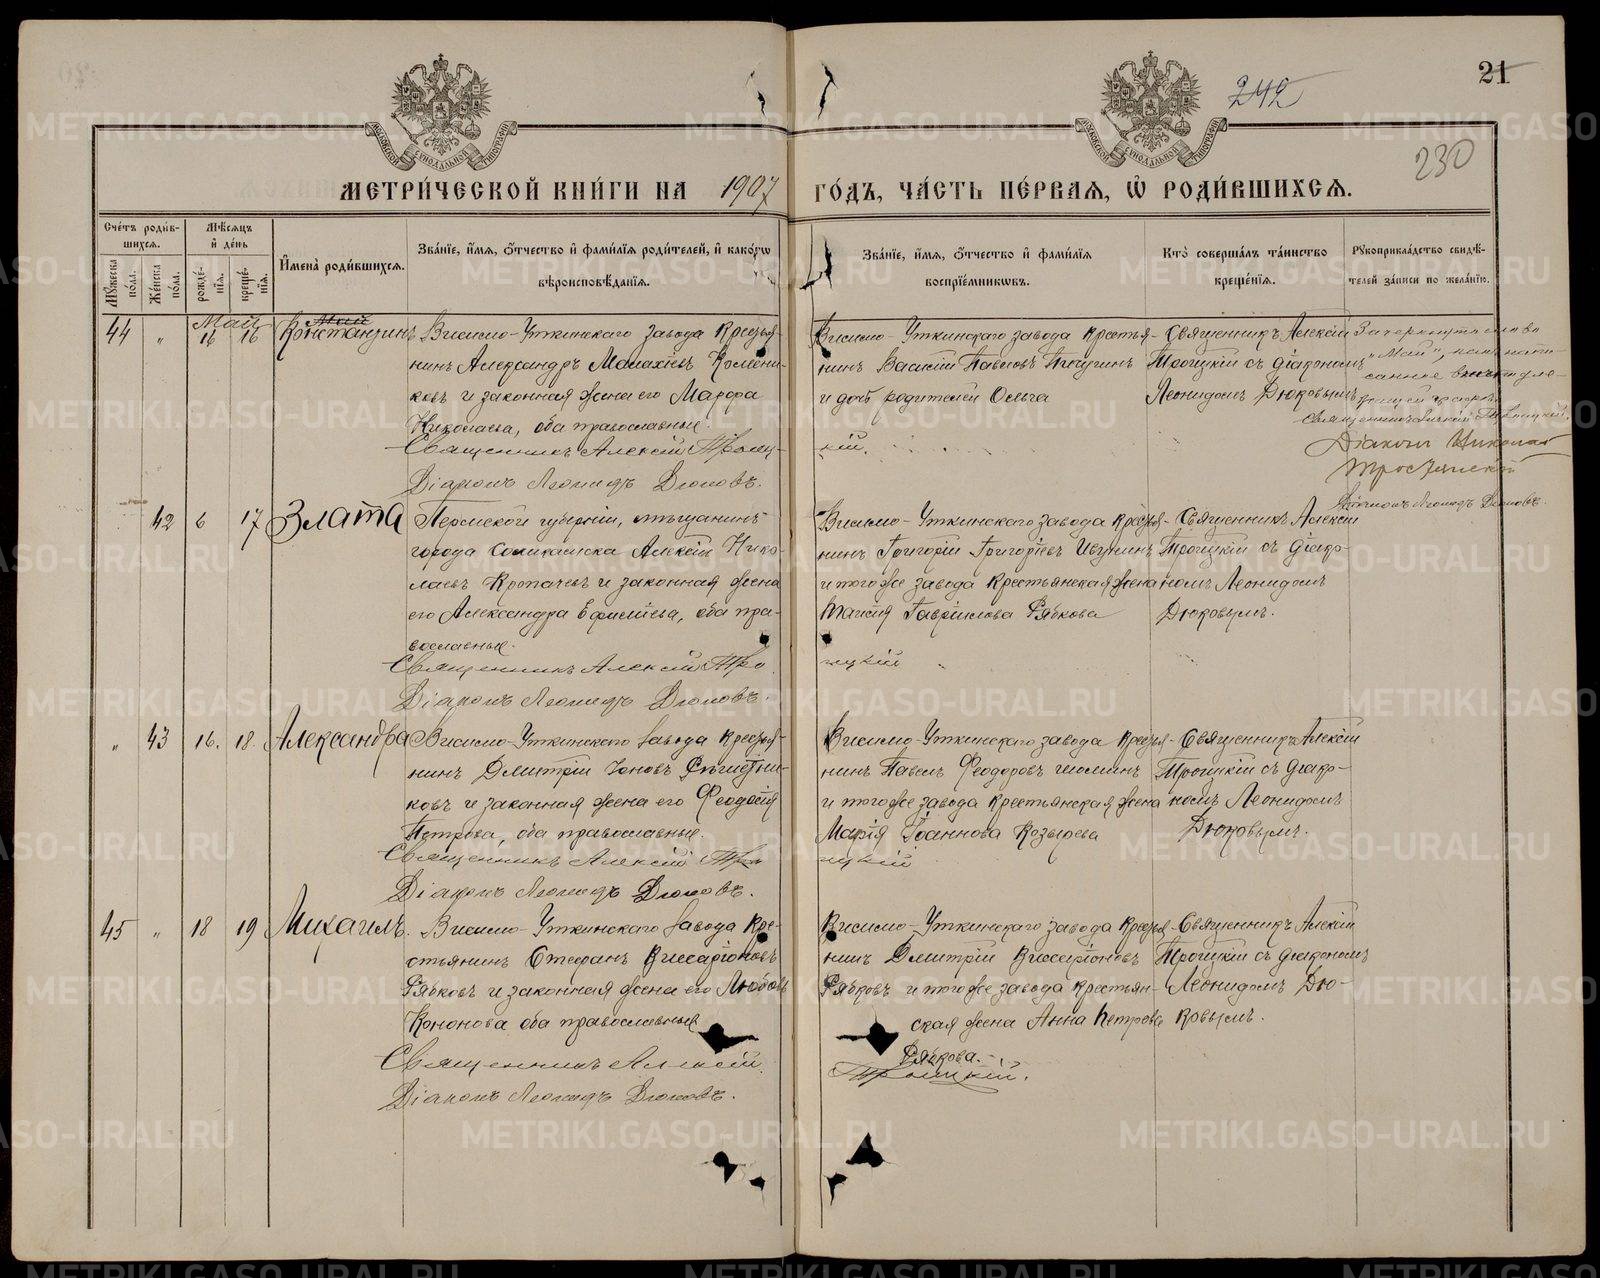 242
21
230
МЕТРИ́ЧЕСКОЙ КНИ́ГИ НА 1907 ГО́ДЪ, ЧА́СТЬ ПЕ́РВАЯ, Ѿ РОДИ́ВШИХСЯ.
Сче́тъ роди́в-
шихся.
Мѣ́сяцъ
и́ де́нь
Мꙋ́жеска по́ла.
Же́нска по́ла.
рожде́-
нїя.
креще́-
нїя.
И҆мена̀ роди́вшихся.
Зва́нїе, и҆́мя, ѻ҆́тчество и҆ фами́лїя роди́телей, и҆ како́гѡ
вѣроисповѣ́данїя.
Зва́нїе, и҆́мя, ѻ҆́тчество и҆ фами́лїя
воспрїе́мникѡвъ.
Кто̀ соверша́лъ та́инство
креще́нїя.
Рꙋкоприкла́дство свидѣ́-
телей за́писи по жела́нїю.
Май
Май
44 " 16 16 Константинъ
Висимо-Уткинскаго завода крестья-
нинъ Александръ Малахіевъ
ковъ и законная жена его Марфа
Николаева, оба православные.
Священникъ Алексій Троиц-
Діаконъ Леонидъ Дюковъ.
Висимо-Уткинскаго завода крестья-
нинъ Василій Павловъ
и дочь родителей Ольга
кій.
Священникъ Алексій
Троицкій съ діакономъ
Леонидомъ Дюковымъ
Зачеркнуто слово
"Май",
Священникъ Алексій Троицкій.
Діаконъ Николай
Діаконъ Леонидъ Дюковъ.
42 6 17 Злата
Пермской губерніи, мѣщанинъ
города Соликамска Алексій Нико-
лаевъ Кропачевъ и законная жена
его Александра Ефимьева, оба пра-
вославные.
Священникъ Алексій Тро
Діаконъ Леонидъ Дюковъ.
Висимо-Уткинскаго завода крестья-
нинъ Григорій Григорьевъ
и того же завода крестьянская жена
Таисія Гавриилова Рябкова
ицкій
Священникъ Алексій
Троицкій съ діако-
номъ Леонидомъ
Дюковымъ.
" 43 16. 18. Александра
Висимо-Уткинскаго завода крестья-
нинъ Димитрій Іоновъ
ковъ и законная жена его Феодосія
Петрова, оба православные.
Священникъ Алексій Тро
Діаконъ Леонидъ Дюковъ.
Висимо-Уткинскаго завода крестья-
нинъ Павелъ Феодоровъ
и того же завода крестьянская жена
Марія Іоаннова Козырева
ицкій
Священникъ Алексій
Троицкій съ діако-
номъ Леонидомъ
Дюковымъ.
45 " 18 19 Михаилъ.
Висимо-Уткинскаго завода кре-
стьянинъ Стефанъ Виссаріоновъ
Рябковъ и законная жена его Любовь
Кононова оба православные
Священникъ Алексій
Діаконъ Леонидъ Дюковъ.
Висимо-Уткинскаго завода крестья-
нинъ Димитрій Виссаріоновъ
Рябковъ и того же завода крестьян-
ская жена Анна Петрова
Рябкова.
Троицкій.
Священникъ Алексій
Троицкій съ діакономъ
Леонидомъ Дю-
ковымъ.
METRIKI.GASO-URAL.RU